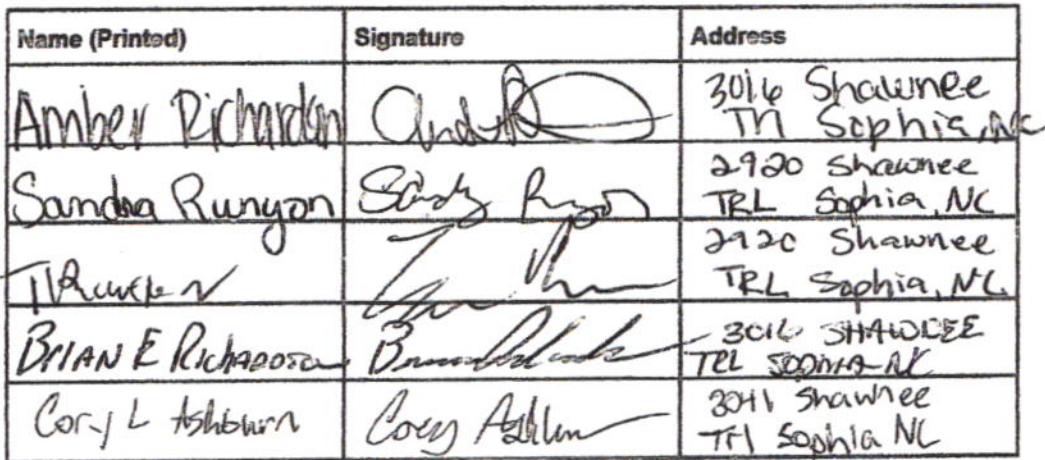 Name (Printed) Signature Address
Amber Richardson 3016 Shawnee
Trl Sophia, NC
Sandra Runyon Sandy Runyon 2920 Shawnee
TRL Sophia, NC
2920 Shawnee
TRL Sophia, NC
BRIAN E RICHARDSON 3016 SHAWNEE
TRL SOPHIA NC
Cory L Ashburn Corey Ashburn 3041 Shawnee
Trl Sophia NC